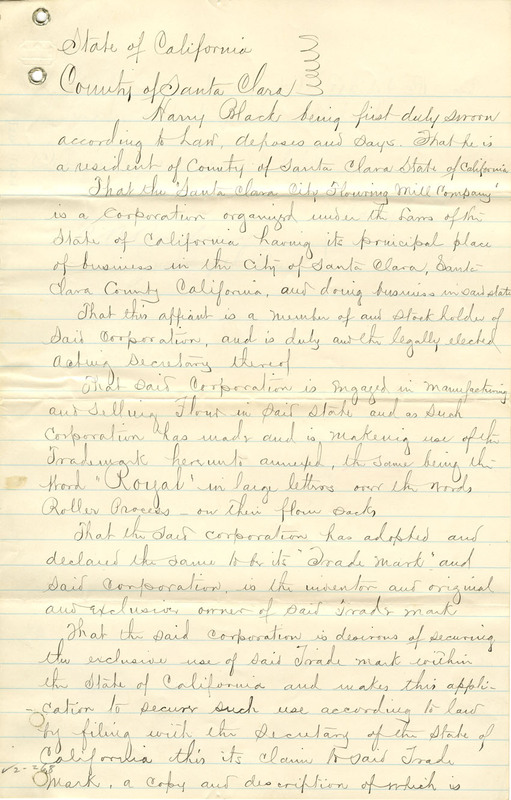 State of California
County of Santa Clara
Harry Black being first duly sworn
according to Law, deposes and says. That he is
a resident of County of Santa Clara State of California
That the "Santa Clara City Flouring Mill Company"
is a Corporation organized under the Laws of the
State of California having its principal place
of business in the City of Santa Clara, Santa
Clara County California, and doing business in said state
That this affiant is a member of and stock holder of
Said Corporation, and is duly and the legally elected
acting Secretary thereof
That said Corporation is engaged in manufacturing
and selling Flour in said State and as such
Corporation has made and is making use of the
Trademark hereunto annexed, the same being the
Word "Royal" in large letters over the words
Roller Process - on their flour sacks
That the said corporation has adopted and
declared the same to be its "Trade Mark" and
said corporation, is the inventor and original
and exclusive owner of said Trade mark
That the said corporation is desirous of securing
the exclusive use of said Trade mark within
the State of California and makes this appli-
cation to secure such use according to law
by filing with the Secretary of the State of
California this its claim to said Trade
Mark, a copy and description of which is